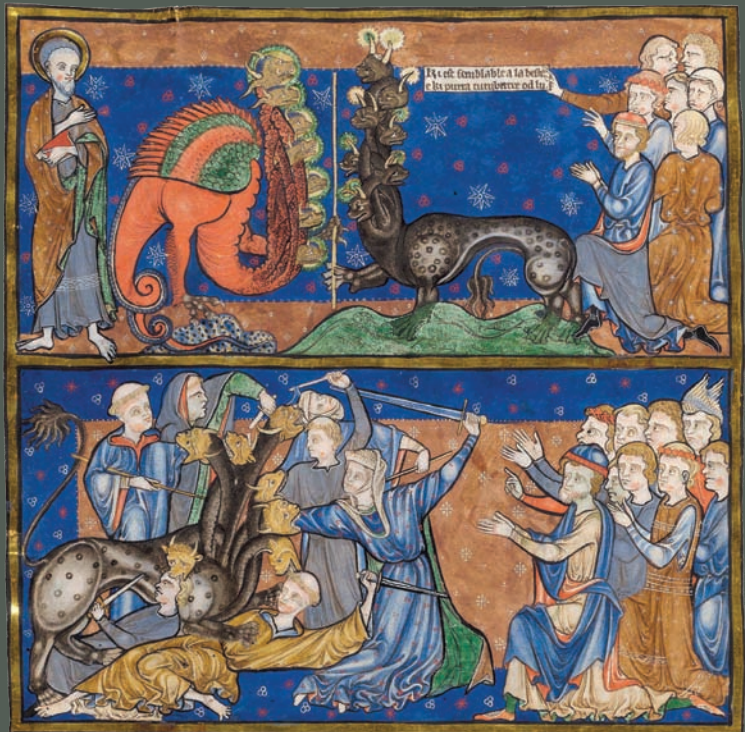 Ki est semblable a la beste
e ki purra cumbatre od